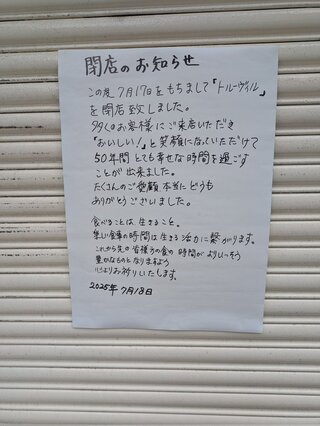 閉店のお知らせ
この度7月17日をもちまして「トルーヴィル」
を閉店致しました。
多くのお客様にご来店いただき
「おいしい!」と笑顔になっていただけて
50年間とても幸せな時間を過ごす
ことが出来ました。
たくさんのご愛顧本当にどうも
ありがとうございました。
食べることは生きること。
楽しい食事の時間は生きる活力に繋がります。
これから先の皆様方の食の時間がよりいっそう
豊かなものとなりますよう
心よりお祈りいたします。
2025年7月18日